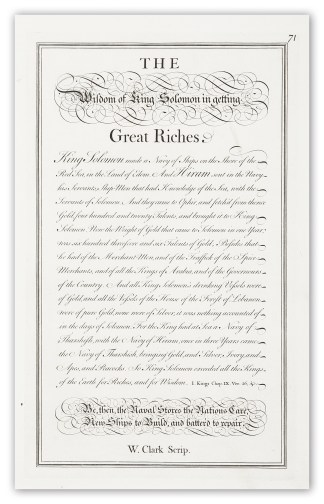 71
THE
Wisdom of King Solomon in getting
Great Riches.
King Solomon made a Navy of Ships on the Shore of the
Red Sea, in the Land of Edom. And Hiram sent in the Navy
his Servants, Ship Men that had Knowledge of the Sea, with the
Servants of Solomon. And they came to Ophir, and fetched from thence
Gold, four hundred and twenty Talents, and brought it to King
Solomon. Now the Weight of Gold that came to Solomon in one Year
was six hundred threescore and six Talents of Gold, Besides that
he had of the Merchant Men, and of the Traffick of the Spice
Merchants, and of all the Kings of Arabia, and of the Governours
of the Country. And all King Solomon's drinking Vessels were
of Gold, and all the Vessels of the House of the Forest of Lebanon
were of pure Gold, none were of Silver, it was nothing accounted of
in the days of Solomon. For the King had at Sea a Navy of
Tharshish, with the Navy of Hiram, once in three Years came
the Navy of Tharshish, bringing Gold, and Silver, Ivory, and
Apes, and Peacocks. So King Solomon exceeded all the Kings
of the Earth for Riches, and for Wisdom. I. Kings Chap IX. Ver. 26, &c.
Be, then, the Naval Stores the Nations Care,
New Ships to Build, and batter'd to repair.
W. Clark Scrip.